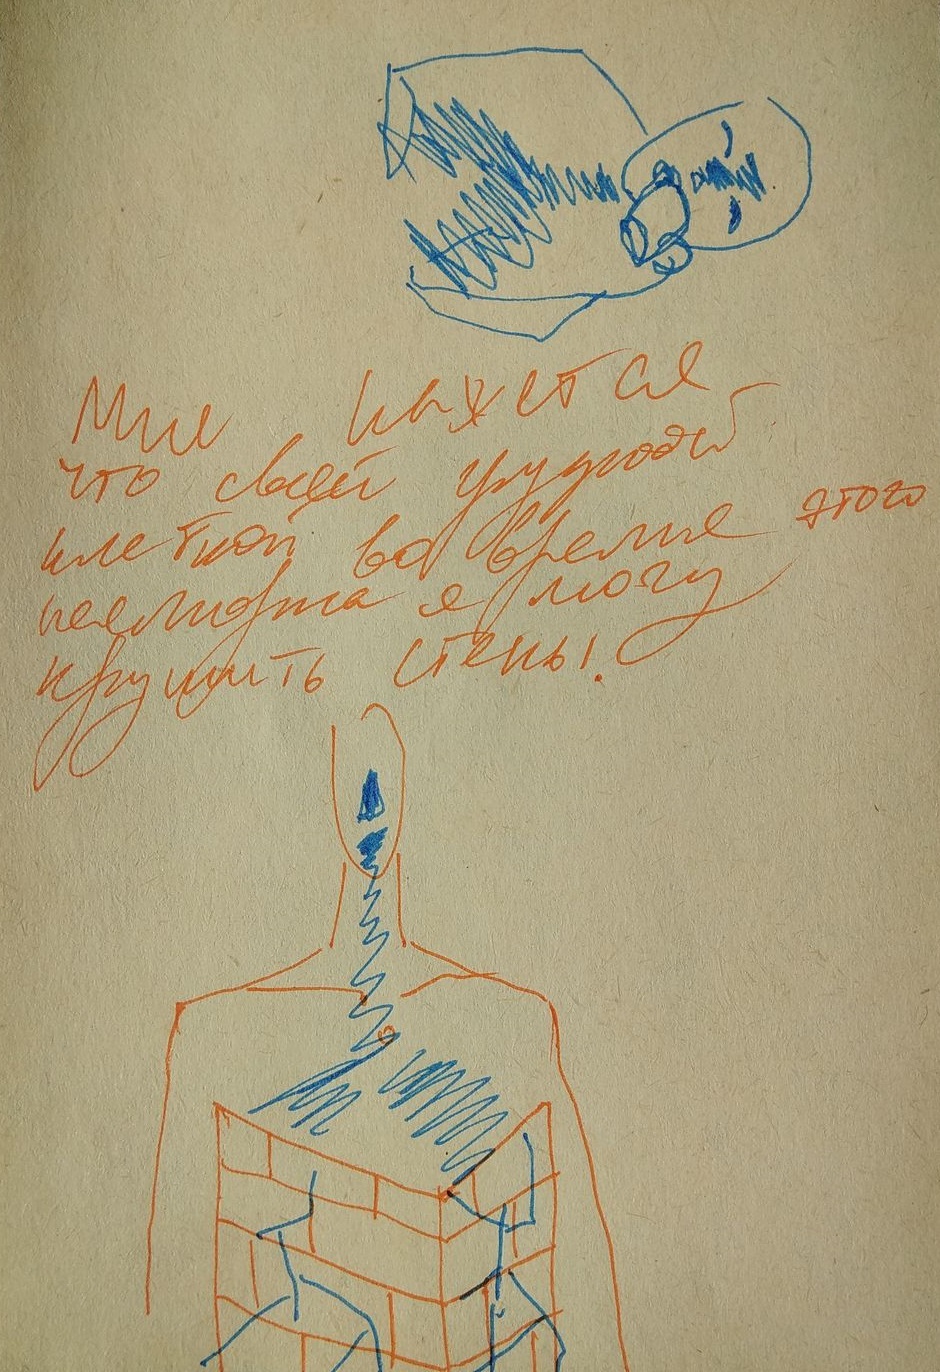 Мне кажется
что своей грудной
клеткой во время этого
неелифта я могу
крушить стены.